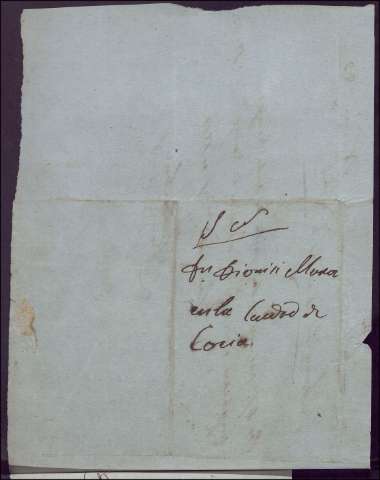 Dionisi Mora
en la Ciudad de
Coria